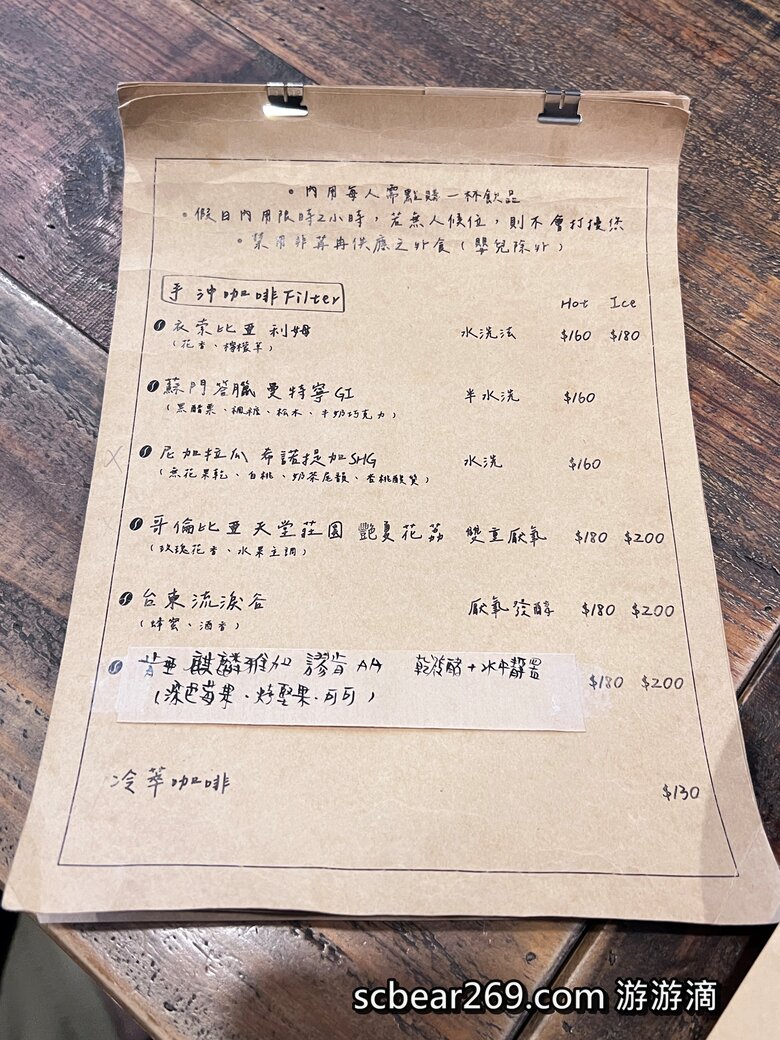 •內用每人需點購一杯飲品
•假日內用限時2小時，若無人候位，則不會打擾您
•禁用非苒冉供應之外食（嬰兒除外）
手沖咖啡Filter
Hot Ice
衣索比亞 利姆 水洗法 $160 $180
（花香、檸檬草）
蘇門答臘 曼特寧G1 半水洗 $160
（黑醋栗、楓糖、松木、牛奶巧克力）
尼加拉瓜 希諾提加SHG 水洗 $160
（無花果乾、白桃、奶茶尾韻、杏桃酸質）
哥倫比亞 天堂莊園 艷夏花荔 雙重厭氧 $180 $200
（玫瑰花香、水果主調）
台東流淚谷 厭氧發醇 $180 $200
（蜂蜜、酒香）
肯亞 麒麟雅加 AA $180 $200
（深色莓果、烤堅果、可可）
冷萃咖啡 $130
scbear269.com 游游滴